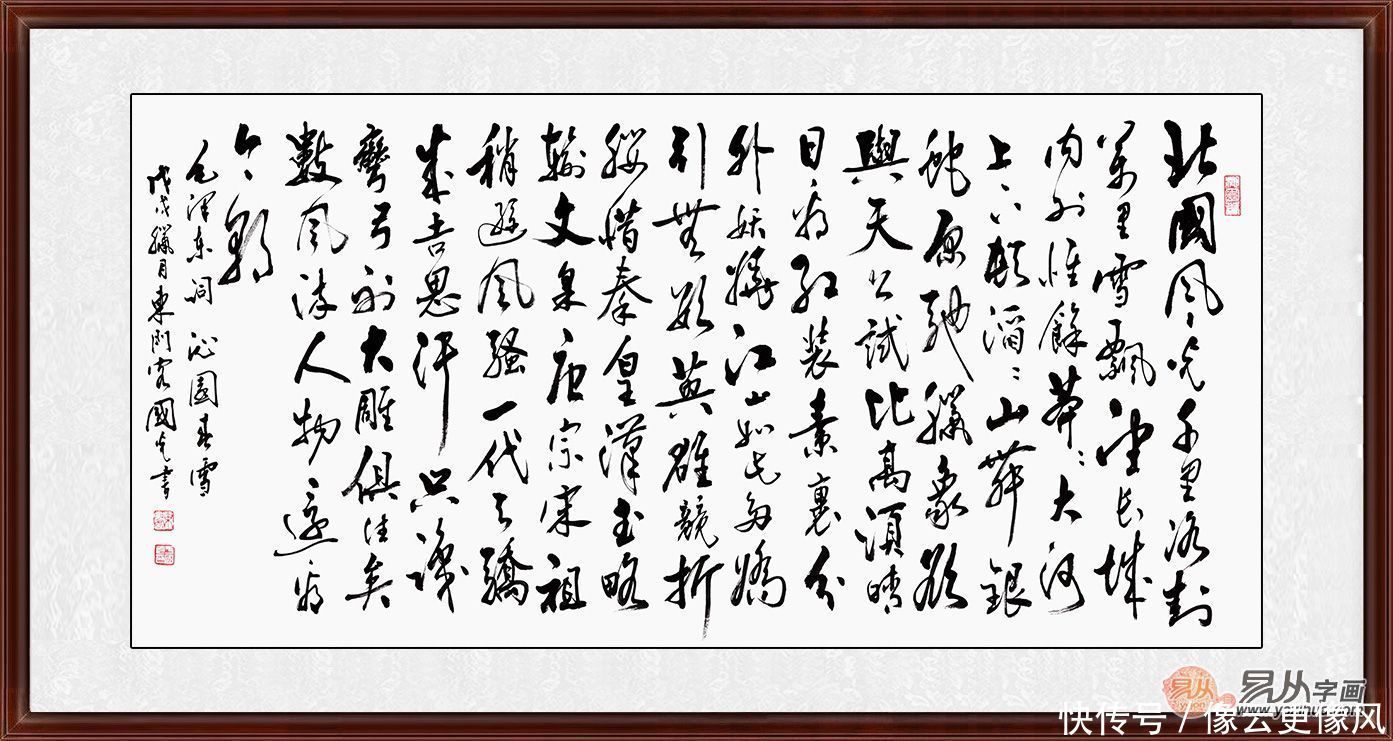 北國風光千里冰封
萬里雪飄望长城
内外惟餘莽々大河
上下頓滔々山舞銀
蛇原馳臘象欲
與天公試比高須晴
日看红装素裹分
外妖嬈江山如此多嬌
引無數英雄競折
腰惜秦皇漢武略
輸文采唐宗宋祖
稍遜風騷一代天驕
成吉思汗只識
彎弓射大雕俱往矣
數風流人物還看
今朝
毛澤东詞 沁園春雪
戊戌臘月東門國光書
易从
易从字画
快传号 / 像云更像风